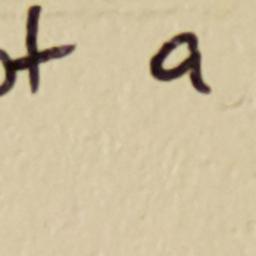 ot a